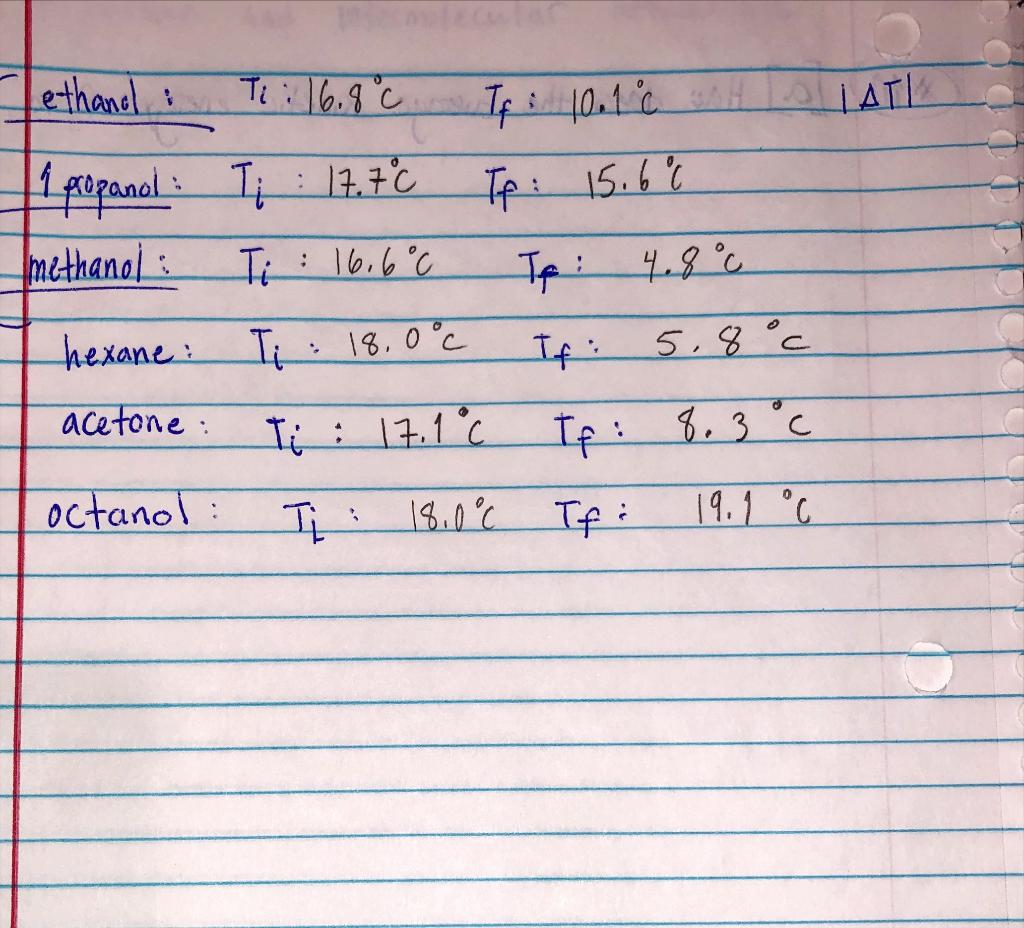 ethanol : Ti : 16.8°C Tf : 10.1°C |ΔT|
1 propanol : Ti : 17.7°C Tf : 15.6°C
methanol : Ti : 16.6°C Tf : 4.8°C
hexane : Ti : 18.0°C Tf : 5.8°C
acetone : Ti : 17.1°C Tf : 8.3°C
octanol : Ti : 18.0°C Tf : 19.1°C